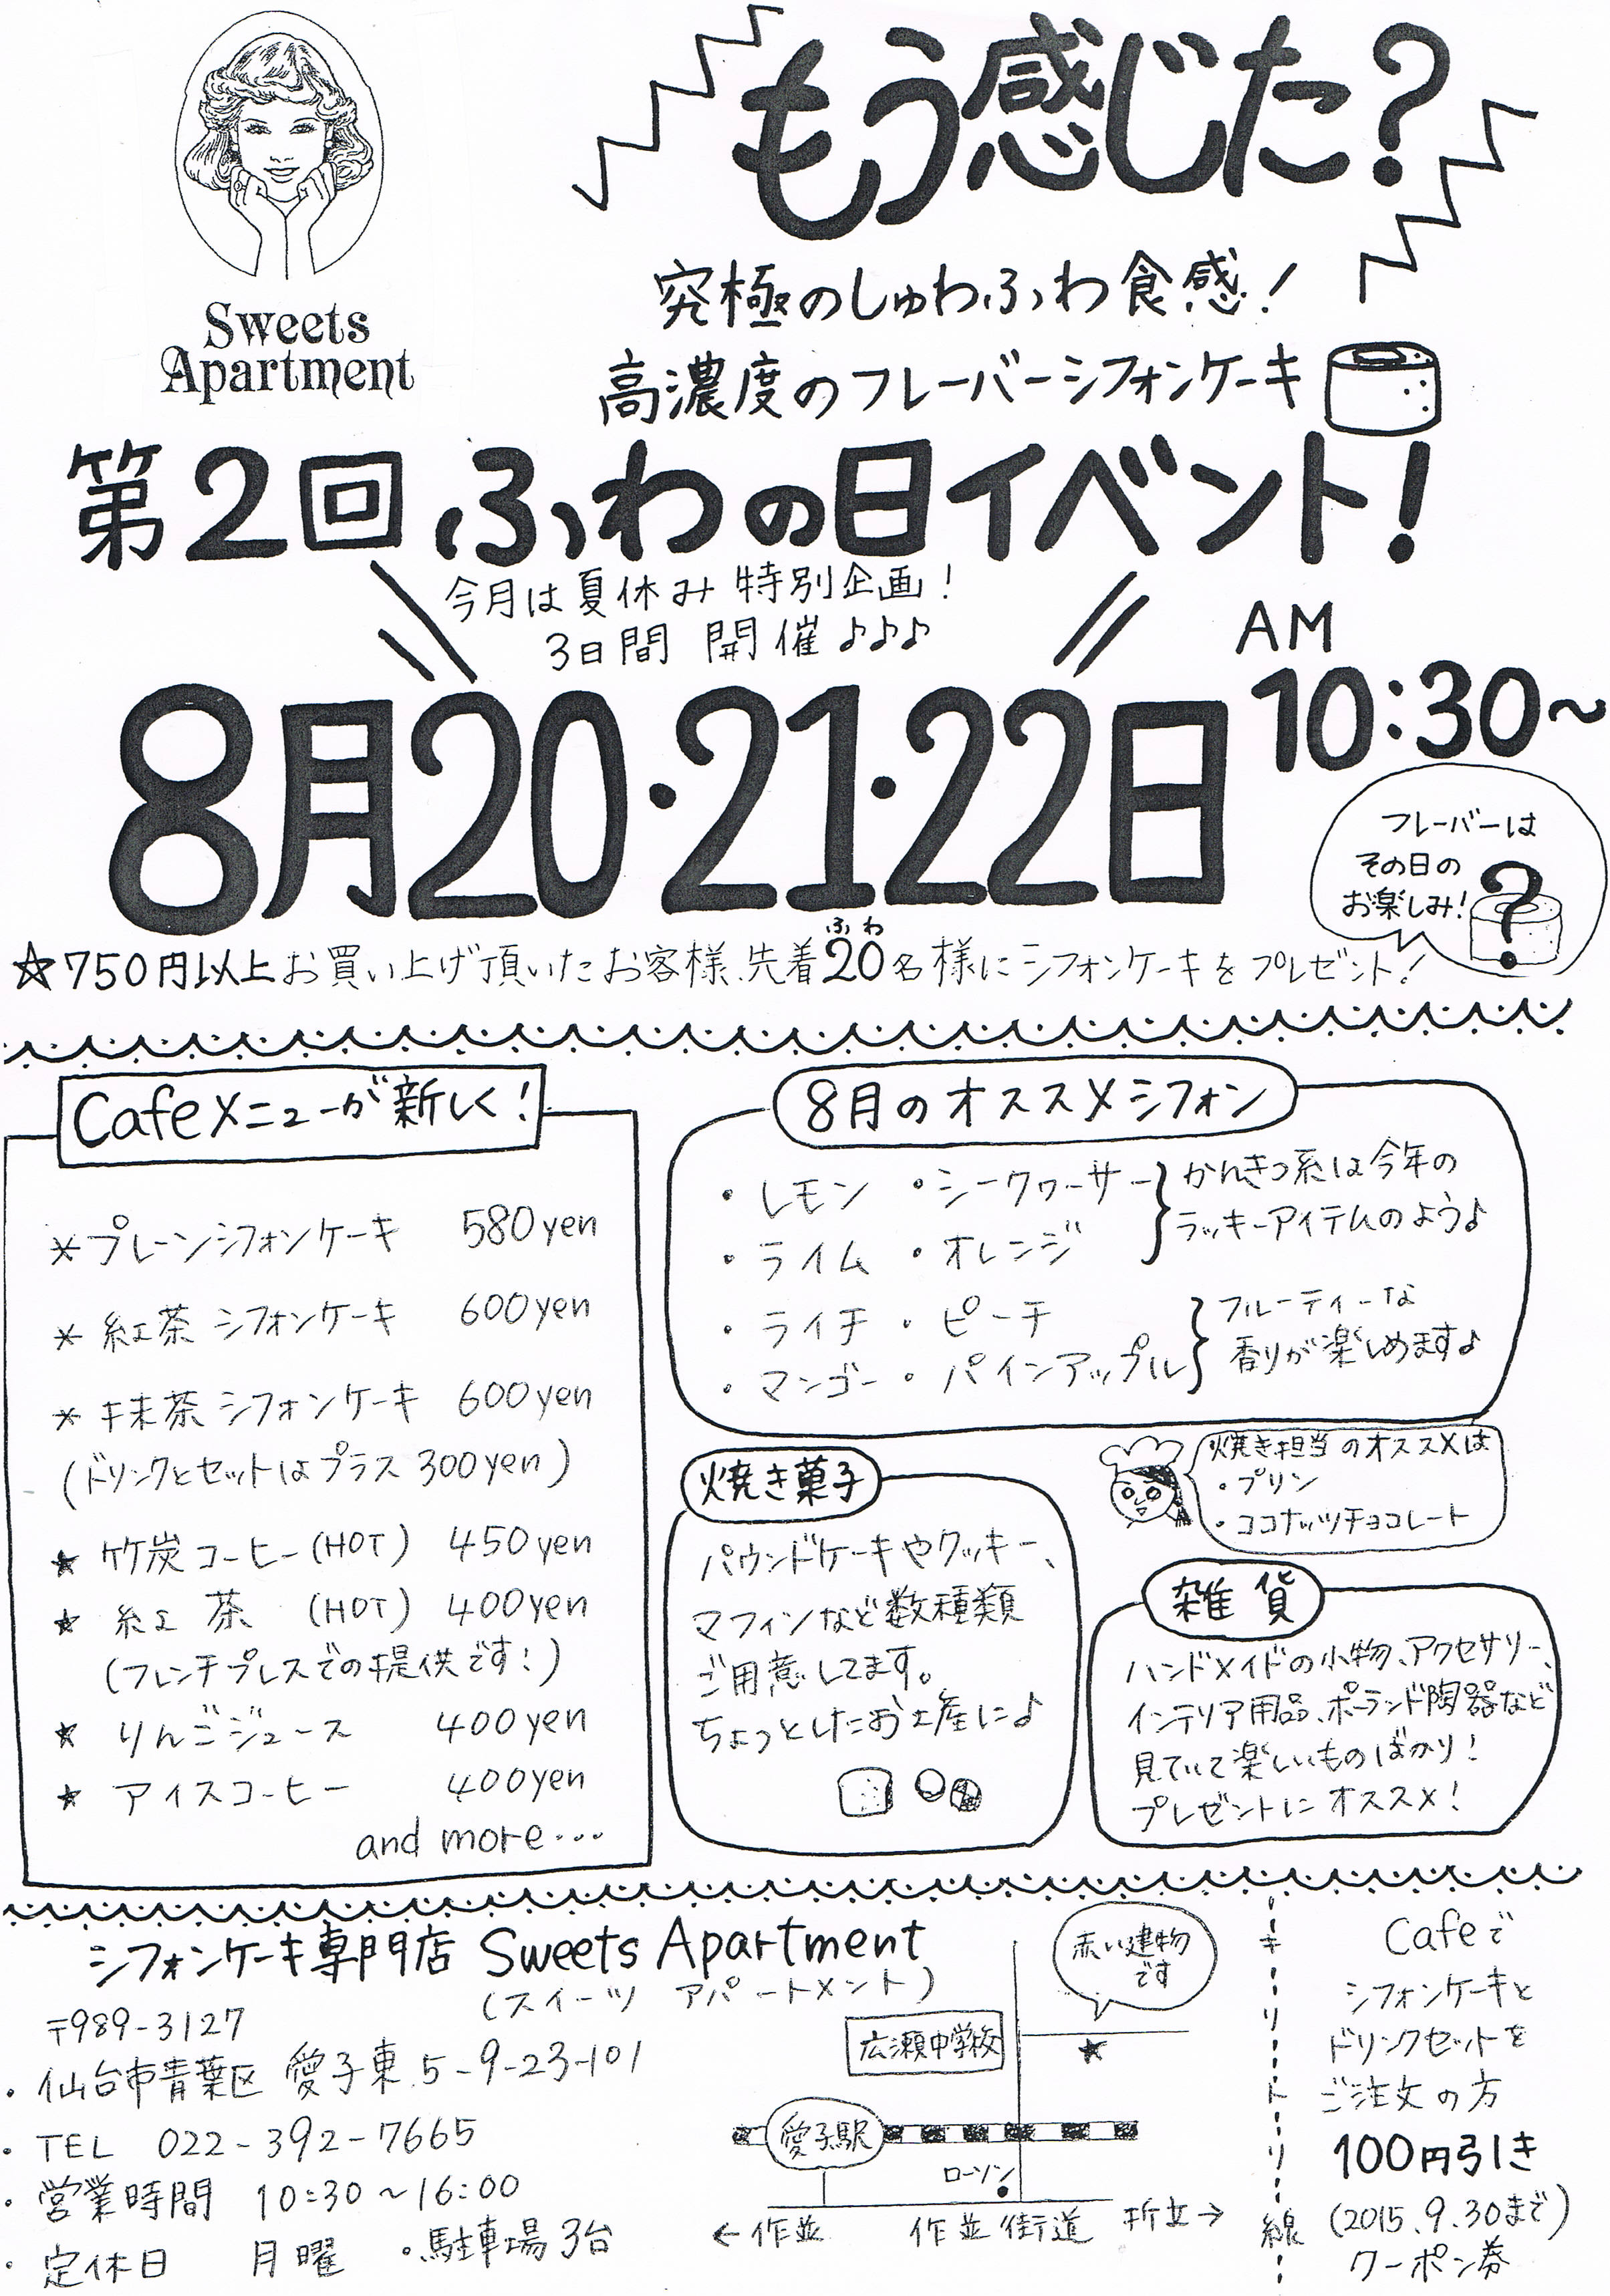 もう感じた?
Sweets
Apartment
究極のしゅわふわ食感!
高濃度のフレーバーシフォンケーキ
第2回ふわの日イベント!
今月は夏休み特別企画!
3日間 開催♪♪♪
8月20・21・22日
AM
10:30~
フレーバーは
その日の
お楽しみ!
?
ふわ
☆750円以上お買い上げ頂いたお客様、先着20名様にシフォンケーキをプレゼント!
Cafeメニューが新しく!
*プレーンシフォンケーキ 580yen
*紅茶シフォンケーキ 600yen
*抹茶シフォンケーキ 600yen
(ドリンクとセットはプラス300yen)
★竹炭コーヒー(HOT) 450yen
★紅茶 (HOT) 400yen
(フレンチプレスでの提供です!)
★りんごジュース 400yen
★アイスコーヒー 400yen
and more…
8月のオススメシフォン
・レモン ・シークヮーサー
・ライム ・オレンジ
かんきつ系は今年の
ラッキーアイテムのよう♪
・ライチ ・ピーチ
・マンゴー ・パインアップル
フルーティーな
香りが楽しめます♪
焼き担当のオススメは
・プリン
・ココナッツチョコレート
焼き菓子
パウンドケーキやクッキー、
マフィンなど数種類
ご用意してます。
ちょっとしたお土産に♪
雑貨
ハンドメイドの小物、アクセサリー、
インテリア用品、ポーランド陶器など
見ていて楽しいものばかり!
プレゼントにオススメ!
シフォンケーキ専門店 Sweets Apartment
(スイーツ アパートメント)
〒989-3127
・仙台市青葉区愛子東5-9-23-101
・TEL 022-392-7665
・営業時間 10:30~16:00
・定休日 月曜 ・駐車場3台
赤い建物
です
広瀬中学校
★
愛子駅
ローソン
←作並 作並街道 折立→
キリトリ線
Cafeで
シフォンケーキと
ドリンクセットを
ご注文の方
100円引き
(2015.9.30まで)
クーポン券